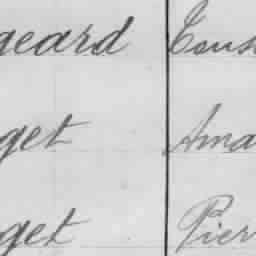 geard Cons
get Ama
get Pier